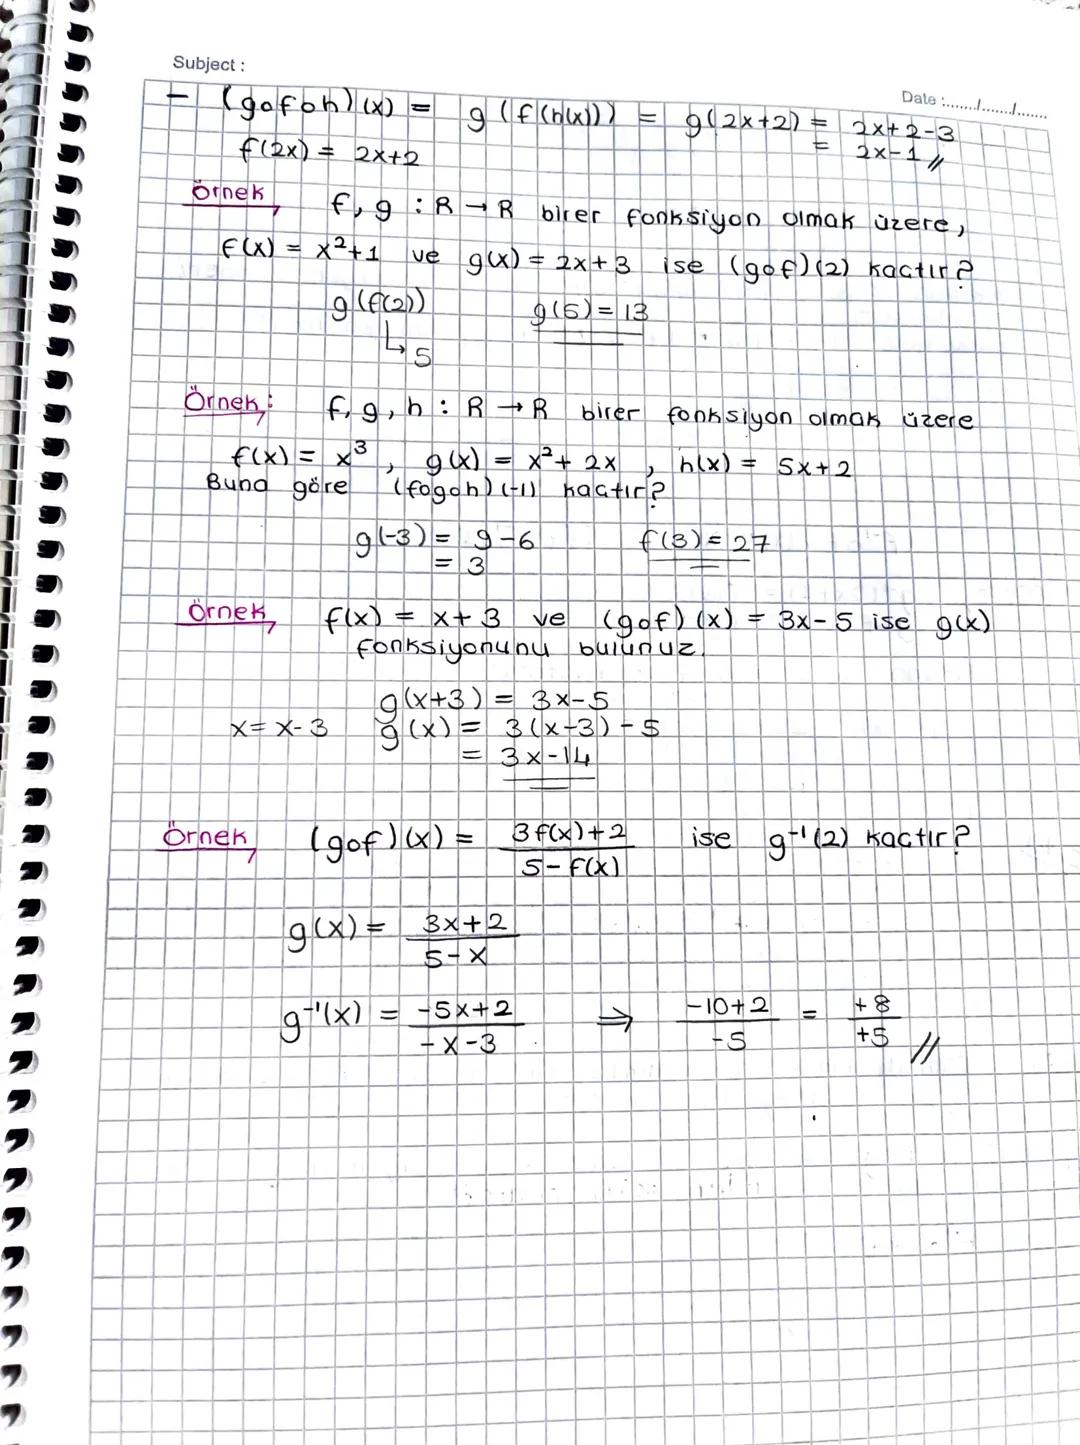 Subject :
Date :......../......./........
- (gofoh)(x) = g(f(h(x))) = g(2x+2) = 2x+2-3
f(2x) = 2x+2 = 2x-1 //
Örnek, f, g : R → R birer fonksiyon olmak üzere,
f(x) = x²+1 ve g(x) = 2x+3 ise (gof)(2) kaçtır?
g(f(2)) g(5) = 13
↳ 5
Örnek: f, g, h : R → R birer fonksiyon olmak üzere
f(x) = x³ , g(x) = x²+2x , h(x) = 5x+2
Buna göre (fogoh)(-1) kaçtır?
g(-3) = 9-6 f(3) = 27
= 3
Örnek, f(x) = x+3 ve (gof)(x) = 3x-5 ise g(x)
fonksiyonunu bulunuz.
g(x+3) = 3x-5
x = x-3 g(x) = 3(x-3)-5
= 3x-14
Örnek, (gof)(x) = 3f(x)+2 / 5-f(x) ise g⁻¹(2) kaçtır?
g(x) = 3x+2 / 5-x
g⁻¹(x) = -5x+2 / -x-3 ⇒ -10+2 / -5 = +8 / +5 //